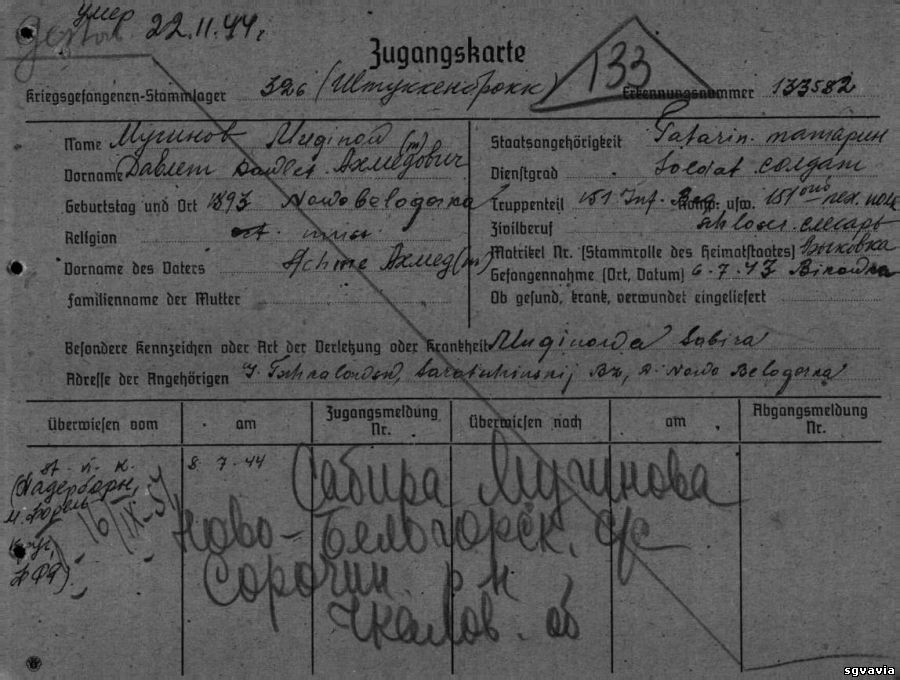 умер
gestorb. 22.11.44г.
Zugangskarte
133
Kriegsgefangenen-Stammlager 326 (Штуккенброкк) Erkennungsnummer 133582
Name Мугинов Muginow (m)
Vorname Давлет Dawlet Ахмедович
Geburtstag und Ort 1893 Nowobelogorka
Religion
Vorname des Vaters Achme Ахмед (m)
Familienname der Mutter
Staatsangehörigkeit Tatarin. татарин
Dienstgrad Soldat солдат
Truppenteil 151 Inf. Komp. usw. 151
Zivilberuf schloss. слесарь
Matrikel Nr. (Stammrolle des Heimatstaates) Быковка
Gefangennahme (Ort, Datum) 6.7.43 Bikowka
Ob gesund, krank, verwundet eingeliefert
Besondere Kennzeichen oder Art der Verletzung oder Krankheit Muginowa Sabira
Adresse der Angehörigen Nowo Belogorka
Überwiesen vom am Zugangsmeldung Nr. Überwiesen nach am Abgangsmeldung Nr.
8.7.44
(Падерборн,
16/IX-57
ФРГ)
Сабира Мугинова
Ново-Бельгорск. с/с
Сорочин. р-н
Чкалов. об
sgvavia